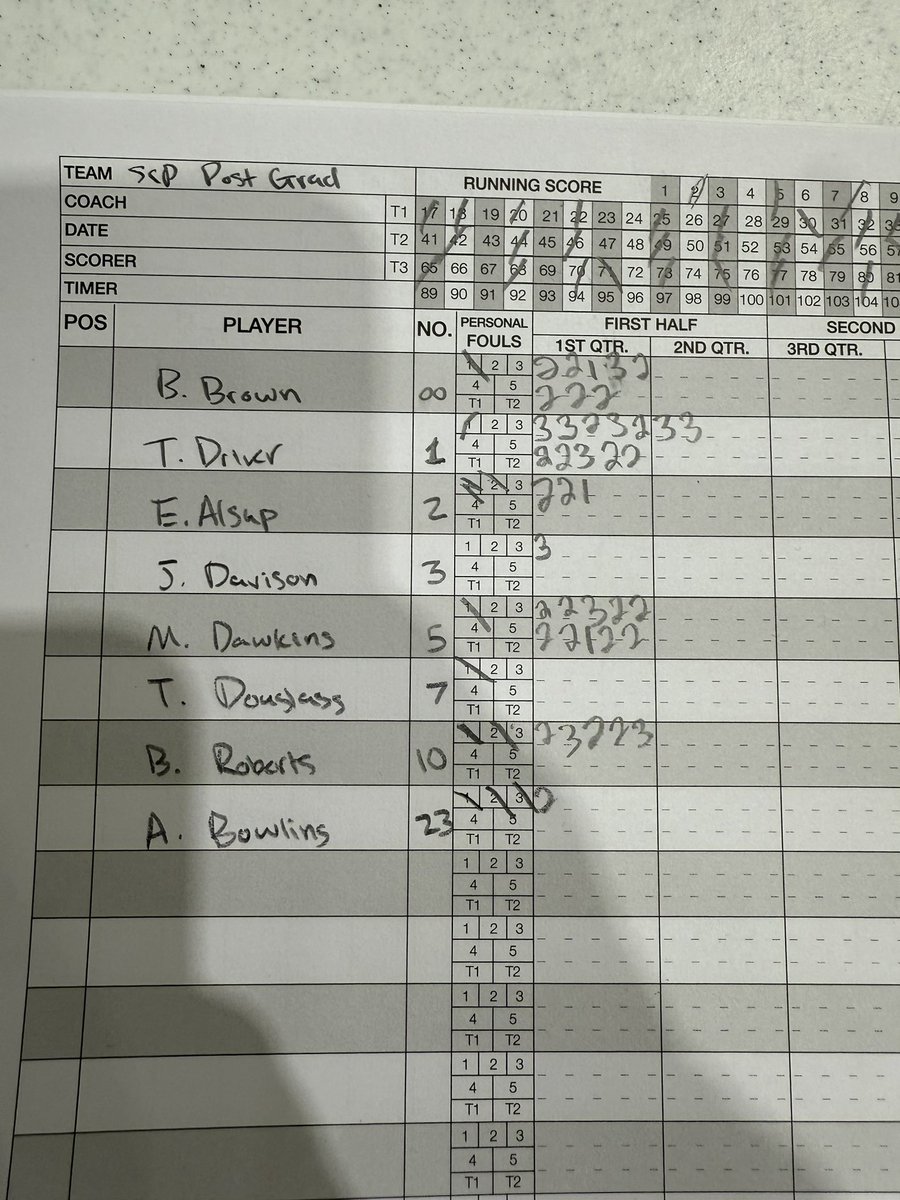 TEAM SCP Post Grad RUNNING SCORE 1 2 3 4 5 6 7 8 9
COACH T1 17 18 19 20 21 22 23 24 25 26 27 28 29 30 31 32
DATE T2 41 42 43 44 45 46 47 48 49 50 51 52 53 54 55 56 57
SCORER T3 65 66 67 68 69 70 71 72 73 74 75 76 77 78 79 80 81
TIMER 89 90 91 92 93 94 95 96 97 98 99 100 101 102 103 104
POS PLAYER NO. PERSONAL FOULS FIRST HALF SECOND
1ST QTR. 2ND QTR. 3RD QTR.
B. Brown 00 1 2 3 22132
4 5 222
T1 T2
T. Driver 1 1 2 3 3323233
4 5 22322
T1 T2
E. Alsup 2 1 2 3 221
4 5
T1 T2
J. Davison 3 1 2 3 3
4 5
T1 T2
M. Dawkins 5 1 2 3 22322
4 5 22122
T1 T2
T. Douglass 7 1 2 3
4 5
T1 T2
B. Roberts 10 1 2 3 23223
4 5
T1 T2
A. Bowling 23 1 2 3
4 5
T1 T2
1 2 3
4 5
T1 T2
1 2 3
4 5
T1 T2
1 2 3
4 5
T1 T2
1 2 3
4 5
T1 T2
1 2 3
4 5
T1 T2